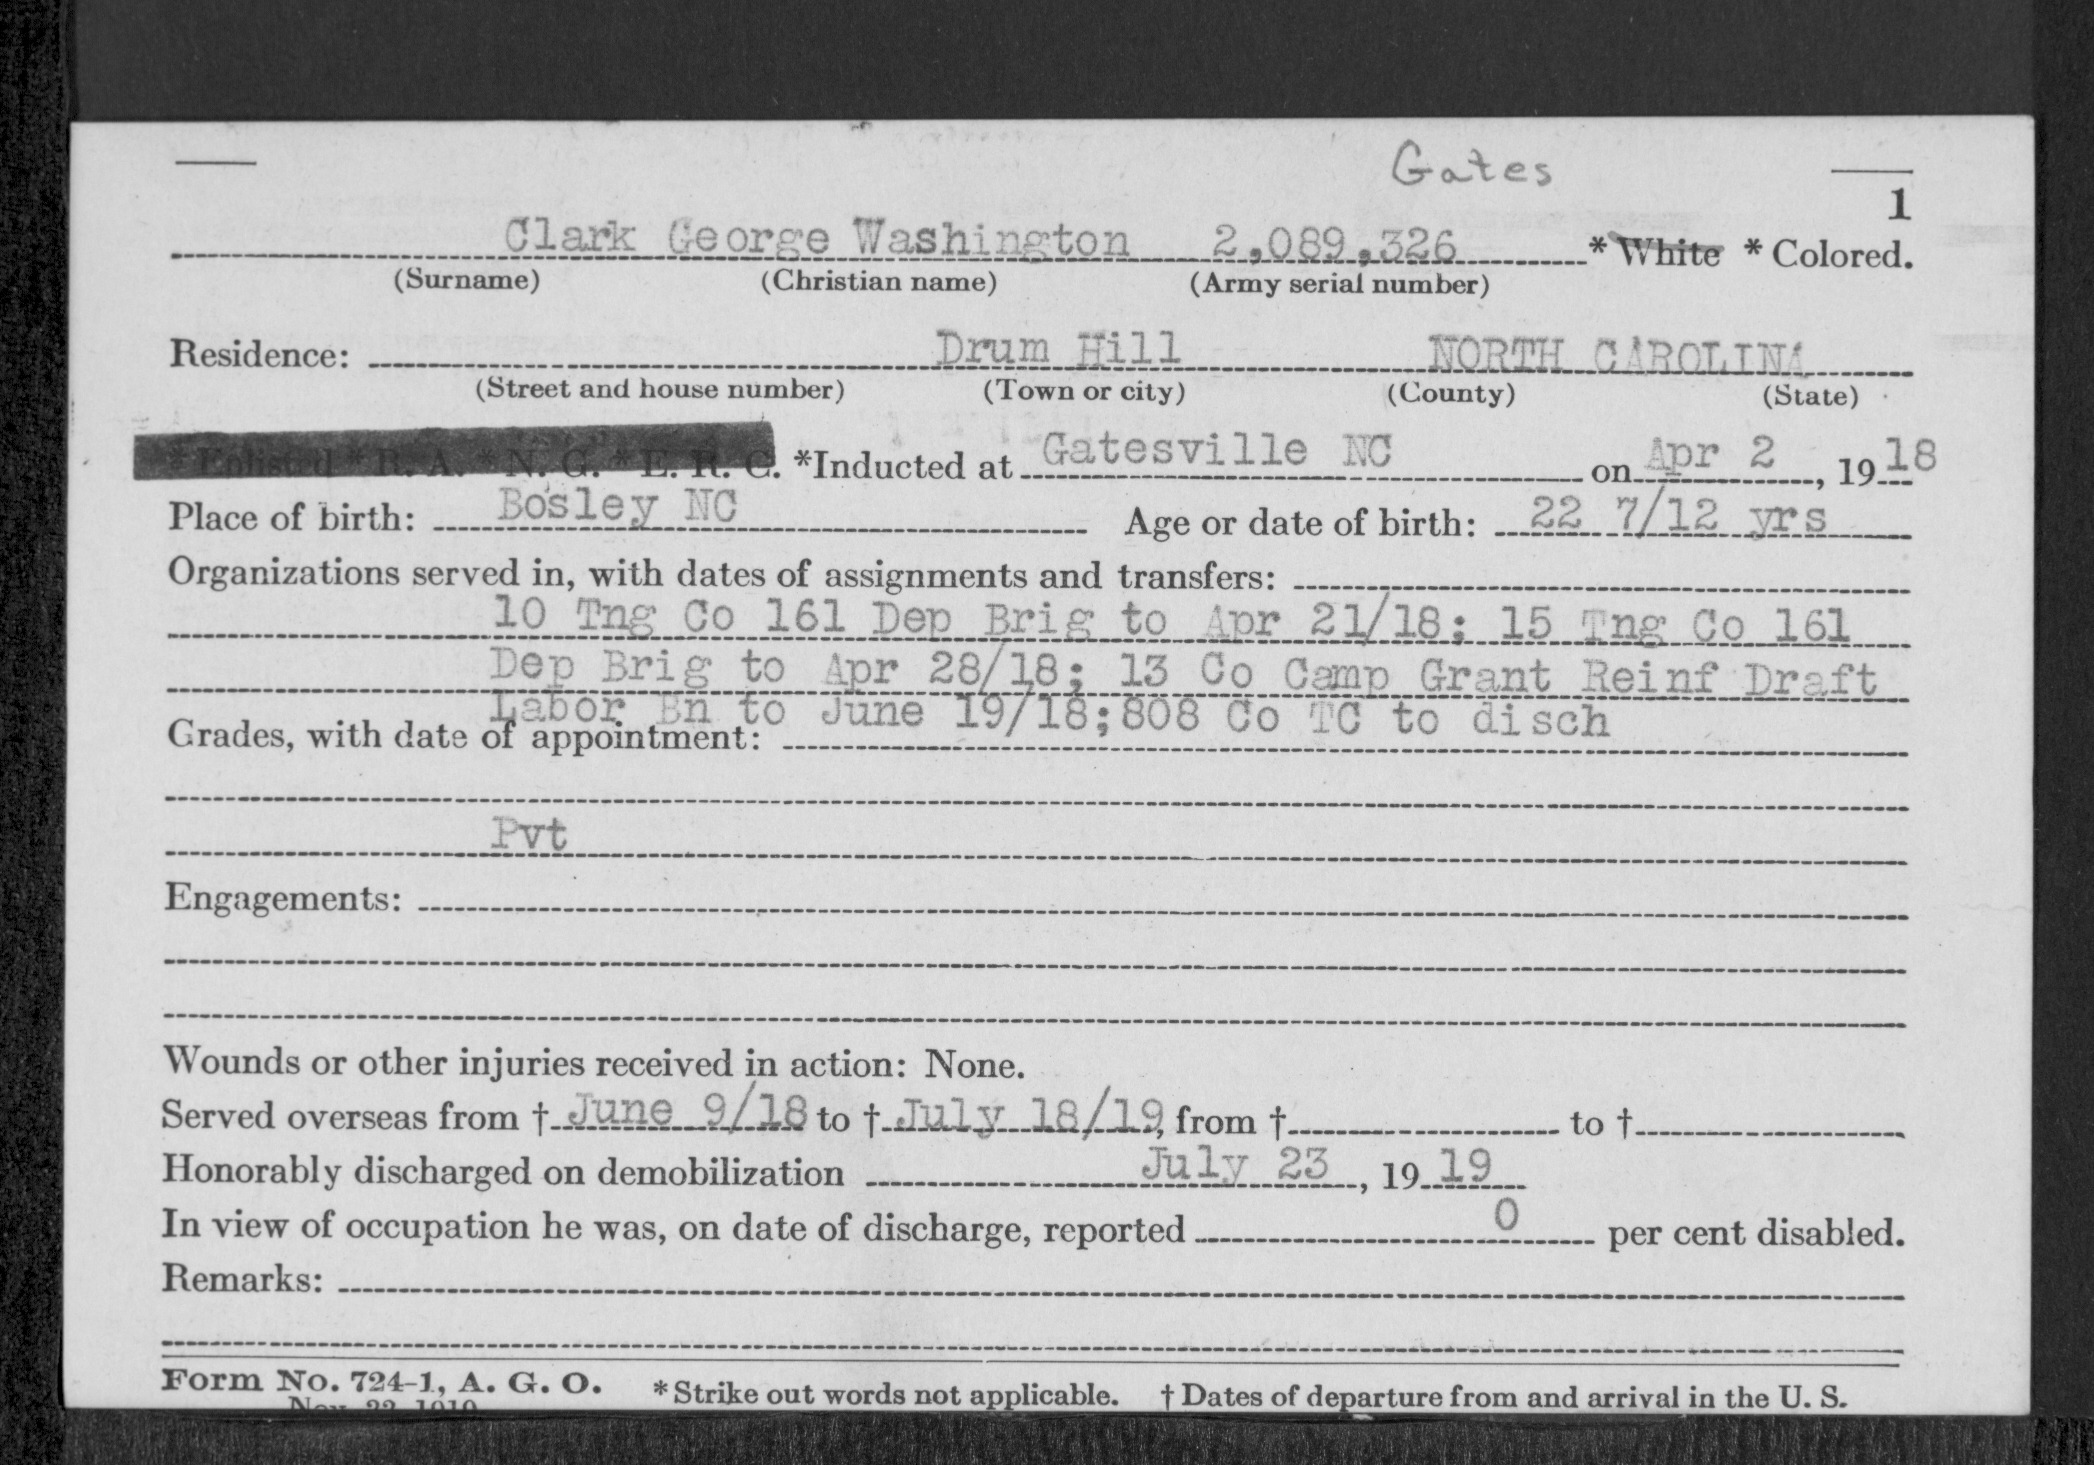 Gates
1
Clark George Washington 2,089,326 * White * Colored.
(Surname) (Christian name) (Army serial number)
Residence: Drum Hill NORTH CAROLINA
(Street and house number) (Town or city) (County) (State)
* Enlisted * R. A. * N. G. * E. R. C. *Inducted at Gatesville NC on Apr 2, 19 18
Place of birth: Bosley NC Age or date of birth: 22 7/12 yrs
Organizations served in, with dates of assignments and transfers:
10 Tng Co 161 Dep Brig to Apr 21/18; 15 Tng Co 161
Dep Brig to Apr 28/18; 13 Co Camp Grant Reinf Draft
Labor Bn to June 19/18;808 Co TC to disch
Grades, with date of appointment:
Pvt
Engagements:
Wounds or other injuries received in action: None.
Served overseas from † June 9/18 to † July 18/19, from † to †
Honorably discharged on demobilization July 23, 19 19
In view of occupation he was, on date of discharge, reported 0 per cent disabled.
Remarks:
Form No. 724-1, A. G. O. * Strike out words not applicable. † Dates of departure from and arrival in the U. S.
Nov. 22, 1919